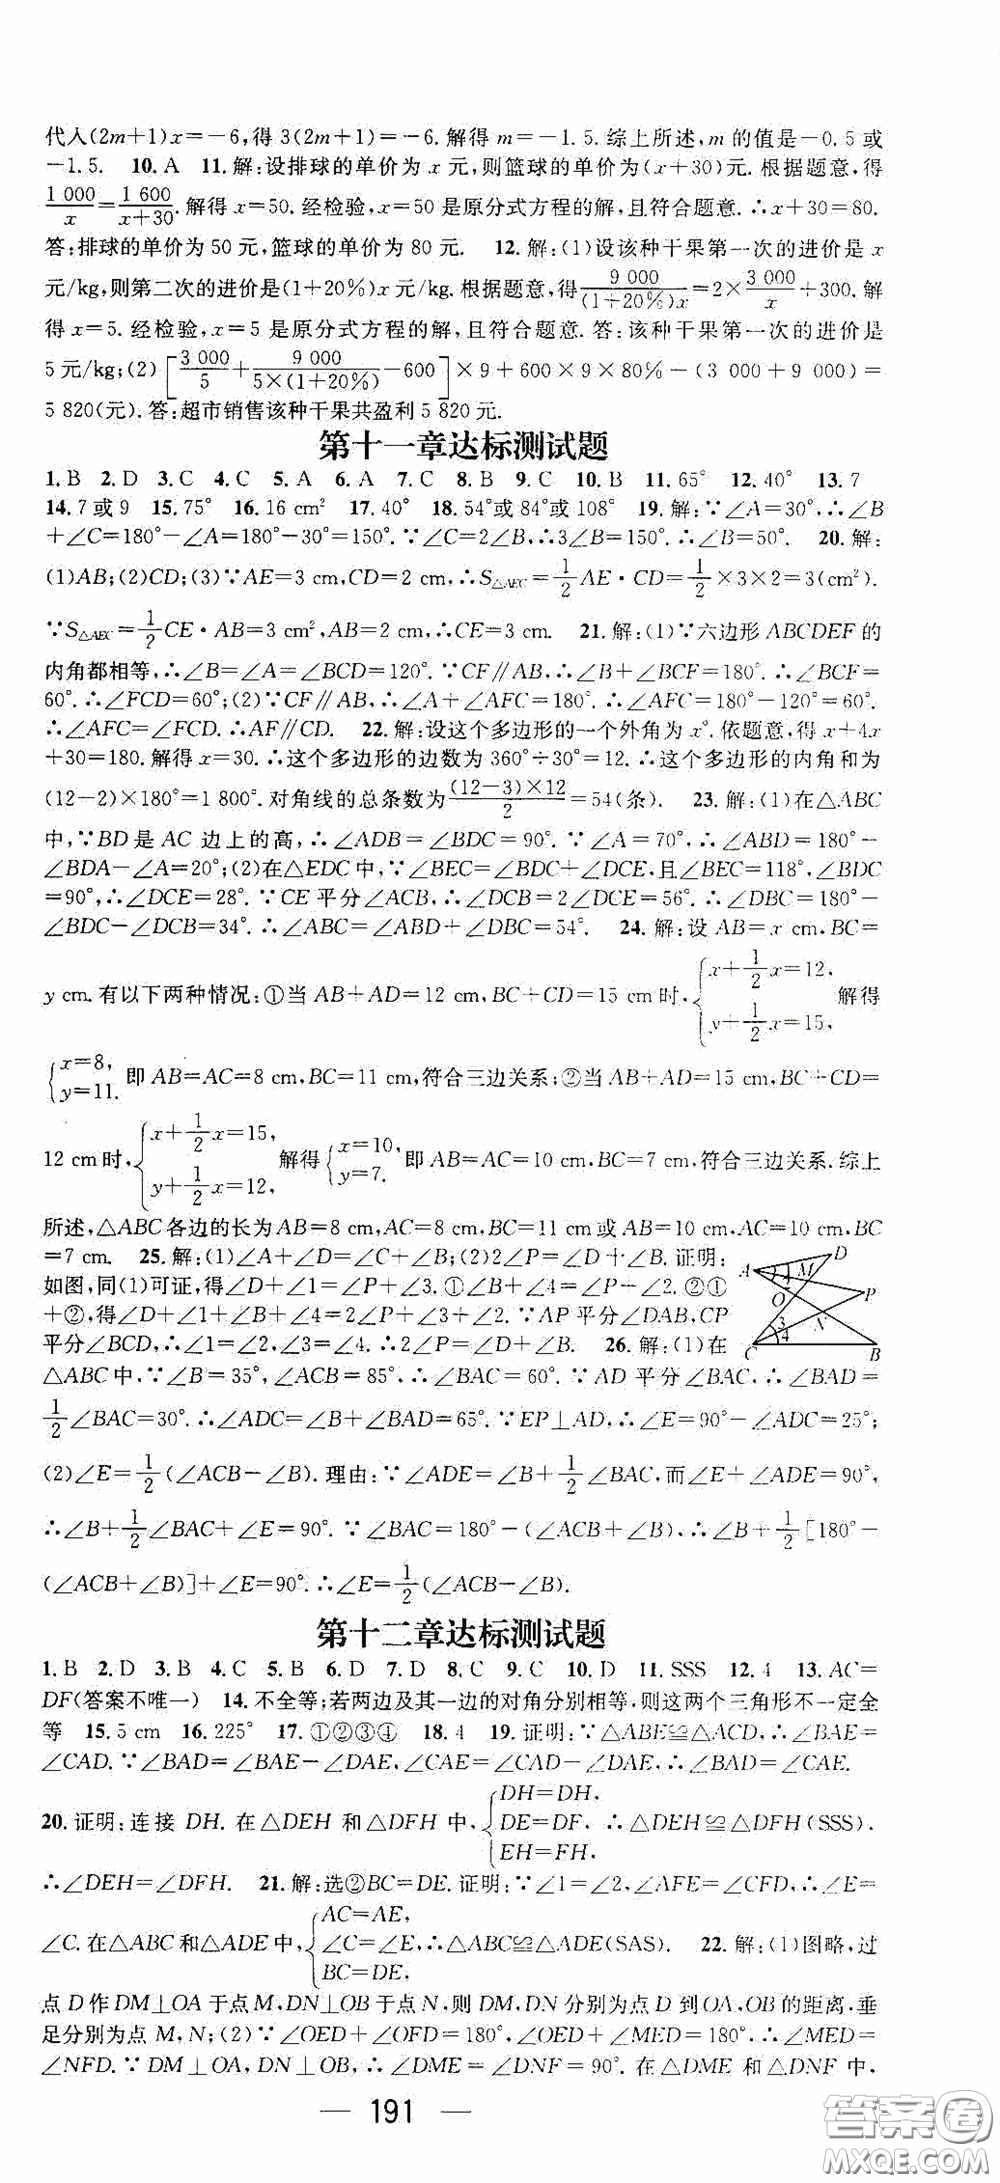 代入(2m+1)x=-6,得3(2m+1)=-6.解得m=-1.5.综上所述,m的值是-0.5或
-1.5. 10. A 11. 解:设排球的单价为x元,则篮球的单价为(x+30)元.根据题意,得
1 000/x=1 600/(x+30).解得x=50.经检验,x=50是原分式方程的解,且符合题意.∴x+30=80.
答:排球的单价为50元,篮球的单价为80元. 12. 解:(1)设该种干果第一次的进价是x
元/kg,则第二次的进价是(1+20%)x元/kg.根据题意,得9 000/((1+20%)x)=2×3 000/x+300.解
得x=5.经检验,x=5是原分式方程的解,且符合题意.答:该种干果第一次的进价是
5元/kg;(2)[3 000/5+9 000/(5×(1+20%))-600]×9+600×9×80%-(3 000+9 000)=
5 820(元).答:超市销售该种干果共盈利5 820元.
第十一章达标测试题
1. B 2. D 3. C 4. C 5. A 6. A 7. C 8. B 9. C 10. B 11. 65° 12. 40° 13. 7
14. 7或9 15. 75° 16. 16 cm² 17. 40° 18. 54°或84°或108° 19. 解:∵∠A=30°,∴∠B
+∠C=180°-∠A=180°-30°=150°.∵∠C=2∠B,∴3∠B=150°.∴∠B=50°. 20. 解:
(1)AB;(2)CD;(3)∵AE=3 cm,CD=2 cm,∴S△AEC=1/2AE·CD=1/2×3×2=3(cm²).
∵S△AEC=1/2CE·AB=3 cm²,AB=2 cm,∴CE=3 cm. 21. 解:(1)∵六边形ABCDEF的
内角都相等,∴∠B=∠A=∠BCD=120°.∵CF∥AB,∴∠B+∠BCF=180°.∴∠BCF=
60°.∴∠FCD=60°;(2)∵CF∥AB,∴∠A+∠AFC=180°.∴∠AFC=180°-120°=60°.
∴∠AFC=∠FCD.∴AF∥CD. 22. 解:设这个多边形的一个外角为x°.依题意,得x+4x
+30=180.解得x=30.∴这个多边形的边数为360°÷30°=12.∴这个多边形的内角和为
(12-2)×180°=1 800°.对角线的总条数为(12-3)×12/2=54(条). 23. 解:(1)在△ABC
中,∵BD是AC边上的高,∴∠ADB=∠BDC=90°.∵∠A=70°,∴∠ABD=180°-
∠BDA-∠A=20°;(2)在△EDC中,∵∠BEC=∠BDC+∠DCE,且∠BEC=118°,∠BDC
=90°,∴∠DCE=28°.∵CE平分∠ACB,∴∠DCB=2∠DCE=56°.∴∠DBC=180°-
∠BDC-∠DCB=34°.∴∠ABC=∠ABD+∠DBC=54°. 24. 解:设AB=x cm,BC=
y cm.有以下两种情况:①当AB+AD=12 cm,BC+CD=15 cm时,{x+1/2x=12, y+1/2x=15,解得
{x=8, y=11.即AB=AC=8 cm,BC=11 cm,符合三边关系;②当AB+AD=15 cm,BC+CD=
12 cm时,{x+1/2x=15, y+1/2x=12,解得{x=10, y=7.即AB=AC=10 cm,BC=7 cm,符合三边关系.综上
所述,△ABC各边的长为AB=8 cm,AC=8 cm,BC=11 cm或AB=10 cm,AC=10 cm,BC
=7 cm. 25. 解:(1)∠A+∠D=∠C+∠B;(2)2∠P=∠D+∠B.证明:
如图,同(1)可证,得∠D+∠1=∠P+∠3.①∠B+∠4=∠P+∠2.②①
+②,得∠D+∠1+∠B+∠4=2∠P+∠3+∠2.∵AP平分∠DAB,CP
平分∠BCD,∴∠1=∠2,∠3=∠4.∴2∠P=∠D+∠B. 26. 解:(1)在
A D M O P 3 4 N C B
△ABC中,∵∠B=35°,∠ACB=85°,∴∠BAC=60°.∵AD平分∠BAC,∴∠BAD=
1/2∠BAC=30°.∴∠ADC=∠B+∠BAD=65°.∵EP⊥AD,∴∠E=90°-∠ADC=25°;
(2)∠E=1/2(∠ACB-∠B).理由:∵∠ADE=∠B+1/2∠BAC,而∠E+∠ADE=90°,
∴∠B+1/2∠BAC+∠E=90°.∵∠BAC=180°-(∠ACB+∠B),∴∠B+1/2[180°-
(∠ACB+∠B)]+∠E=90°.∴∠E=1/2(∠ACB-∠B).
第十二章达标测试题
1. B 2. D 3. B 4. C 5. B 6. D 7. D 8. C 9. C 10. D 11. SSS 12. 4 13. AC=
DF(答案不唯一) 14. 不全等;若两边及其一边的对角分别相等,则这两个三角形不一定全
等 15. 5 cm 16. 225° 17. ①②③④ 18. 4 19. 证明:∵△ABE≌△ACD,∴∠BAE=
∠CAD.∵∠BAD=∠BAE-∠DAE,∠CAE=∠CAD-∠DAE,∴∠BAD=∠CAE.
20. 证明:连接DH.在△DEH和△DFH中,{DH=DH, DE=DF, EH=FH, ∴△DEH≌△DFH(SSS).
∴∠DEH=∠DFH. 21. 解:选②BC=DE.证明:∵∠1=∠2,∠AFE=∠CFD,∴∠E=
∠C.在△ABC和△ADE中,{AC=AE, ∠C=∠E, BC=DE,∴△ABC≌△ADE(SAS). 22. 解:(1)图略,过
点D作DM⊥OA于点M,DN⊥OB于点N,则DM,DN分别为点D到OA,OB的距离,垂
足分别为点M,N;(2)∵∠OED+∠OFD=180°,∠OED+∠MED=180°,∴∠MED=
∠NFD.∵DM⊥OA,DN⊥OB,∴∠DME=∠DNF=90°.在△DME和△DNF中,
— 191 —
答案圈
MXQE.COM